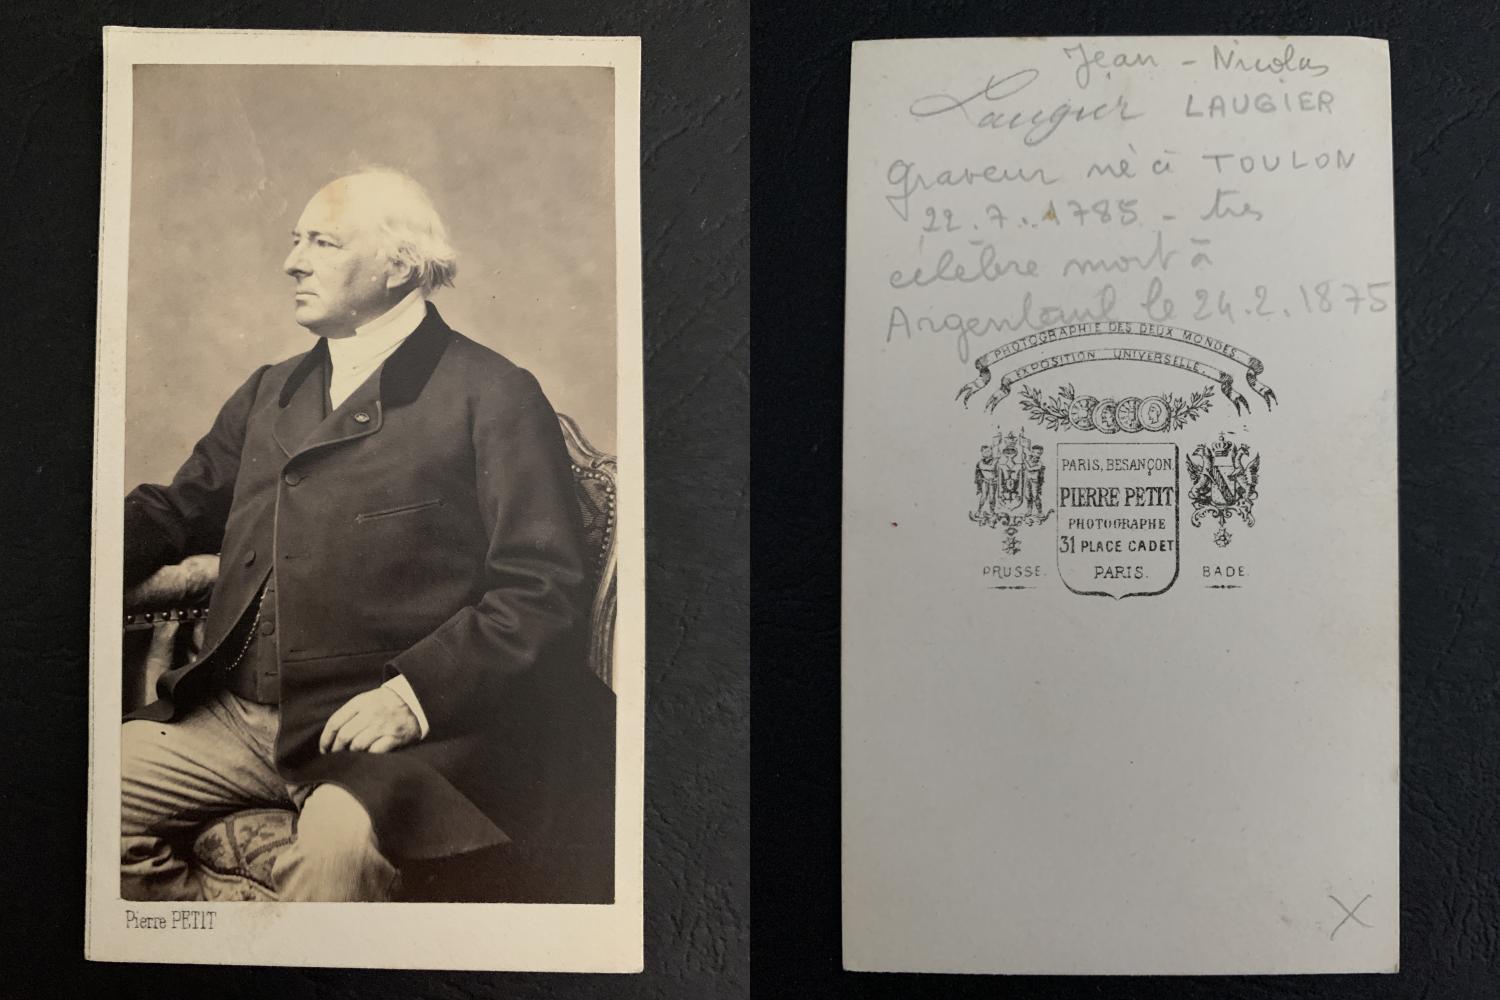 Pierre PETIT
Jean - Nicolas
Laugier LAUGIER
graveur né à TOULON
22.7.1785 - très
célèbre mort à
Argenteuil le 24.2.1875
PHOTOGRAPHIE DES DEUX MONDES
EXPOSITION UNIVERSELLE.
PARIS, BESANÇON,
PIERRE PETIT
PHOTOGRAPHE
31 PLACE CADET
PARIS.
PRUSSE.
BADE.
X